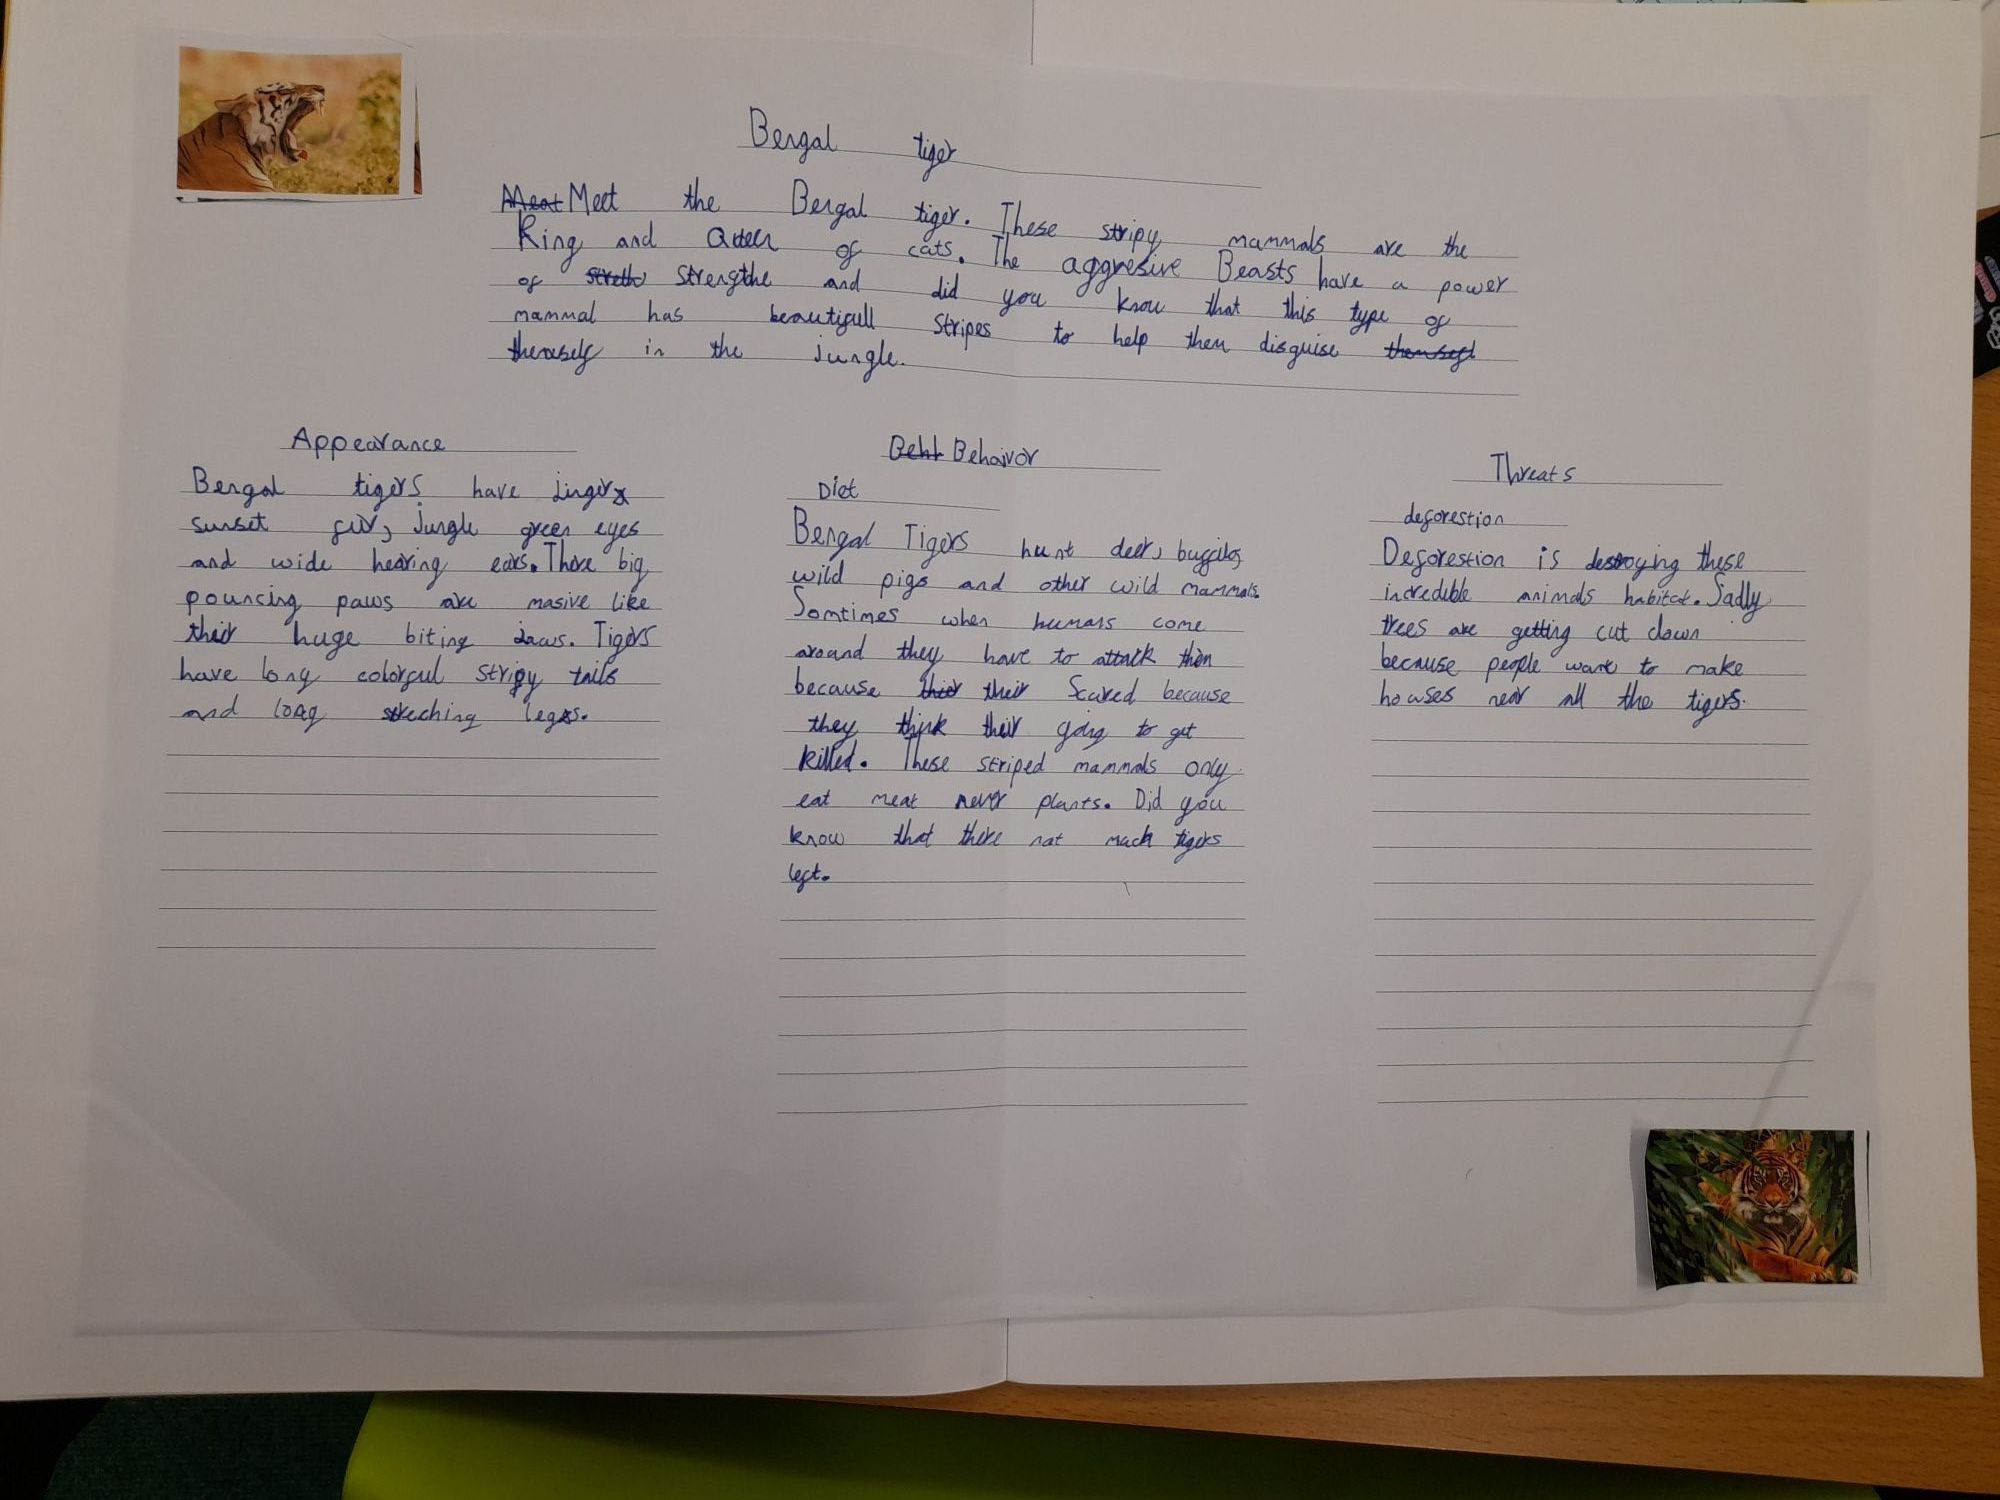 Bengal tiger
Meat Meet the Bengal tiger. These stripy mammals are the
King and Queen of cats. The aggresive Beasts have a power
of streth strengthe and did you know that this type of
mammal has beautifull stripes to help them disguise themself
themself in the jungle.
Appearance
Bengal tigers have ginger
sunset fur, jungle green eyes
and wide hearing ears. There big
pouncing paws are masive like
their huge biting jaws. Tigers
have long colorful stripy tails
and long streching legs.
Beht Behaivor
Diet
Bengal Tigers hunt deer,
wild pigs and other wild mammals.
Somtimes when humans come
around they have to attack them
because thier their Scared because
they think their going to get
killed. These striped mammals only
eat meat never plants. Did you
know that there not much tigers
left.
Threats
deforestion
Deforestion is destroying these
incredible animals habitat. Sadly
trees are getting cut down
because people want to make
houses near all the tigers.